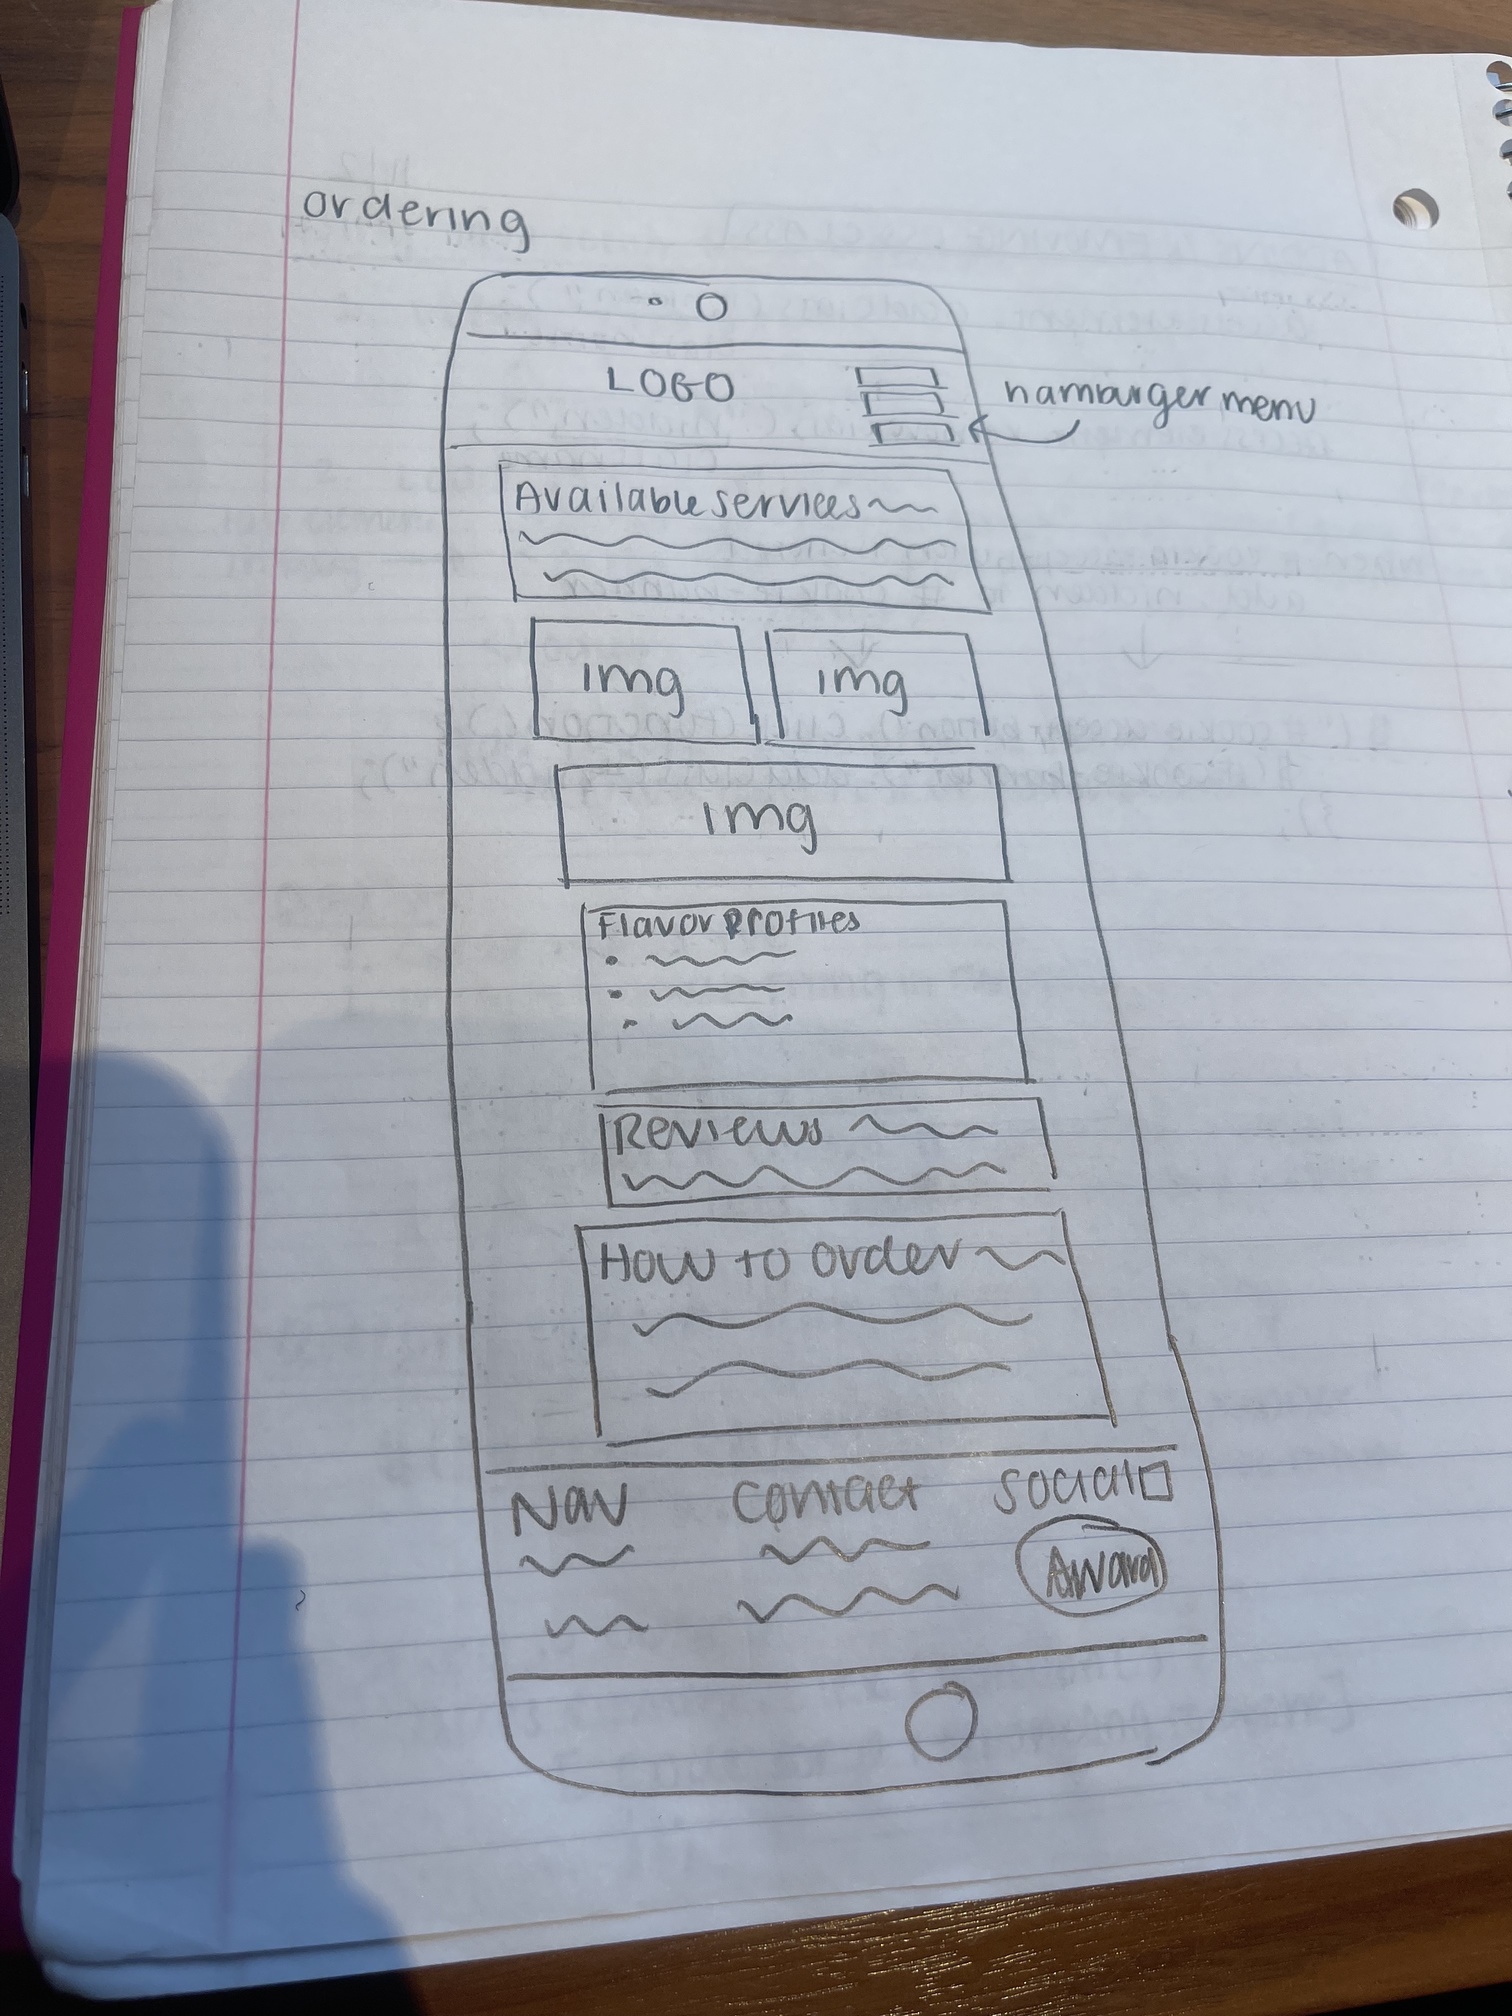 ordering
LOGO
hamburger menu
Available services
img img
img
Flavor Profiles
Reviews
How to order
Nav Contact Social
Award